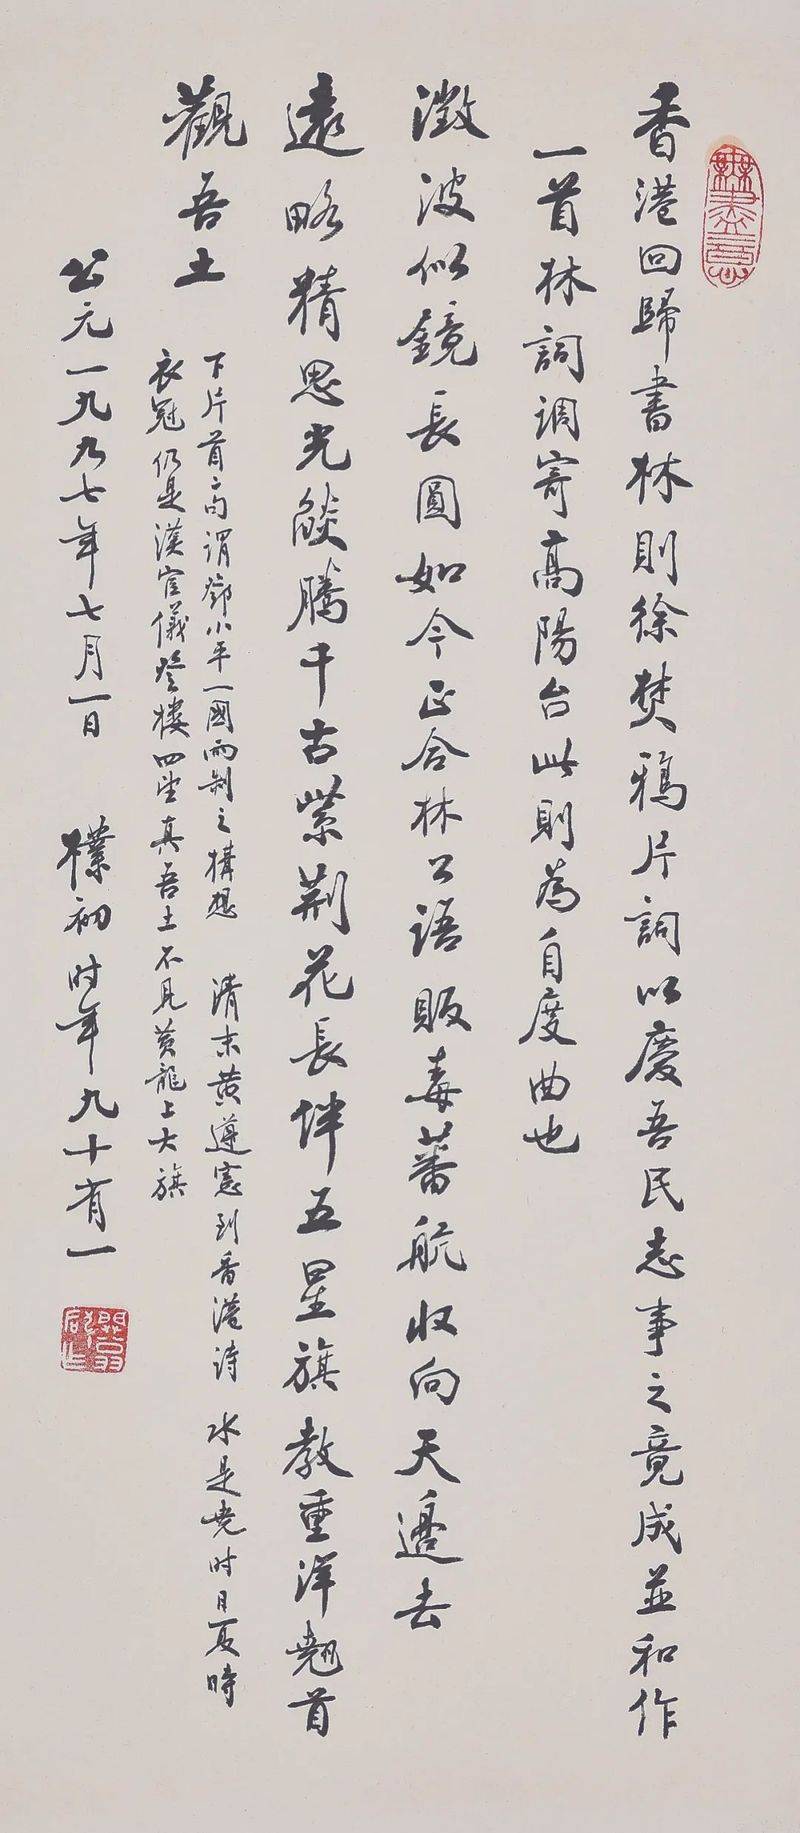 無盡意
香港回歸書林則徐焚鴉片詞以慶吾民志事之竟成並和作
一首林詞調寄高陽台此則為自度曲也
澂波似鏡長圓如今正合林公語販毒蕃航收向天邊去
遠略精思光燄騰千古紫荆花長伴五星旗教重洋翹首
觀吾土
下片首二句謂鄧小平一國兩制之構想 清末黄遵憲到香港詩 水是堯时日夏時
衣冠仍是漢官儀登樓四望真吾土不見黄龍上大旗
公元一九九七年七月一日 樸初时年九十有一